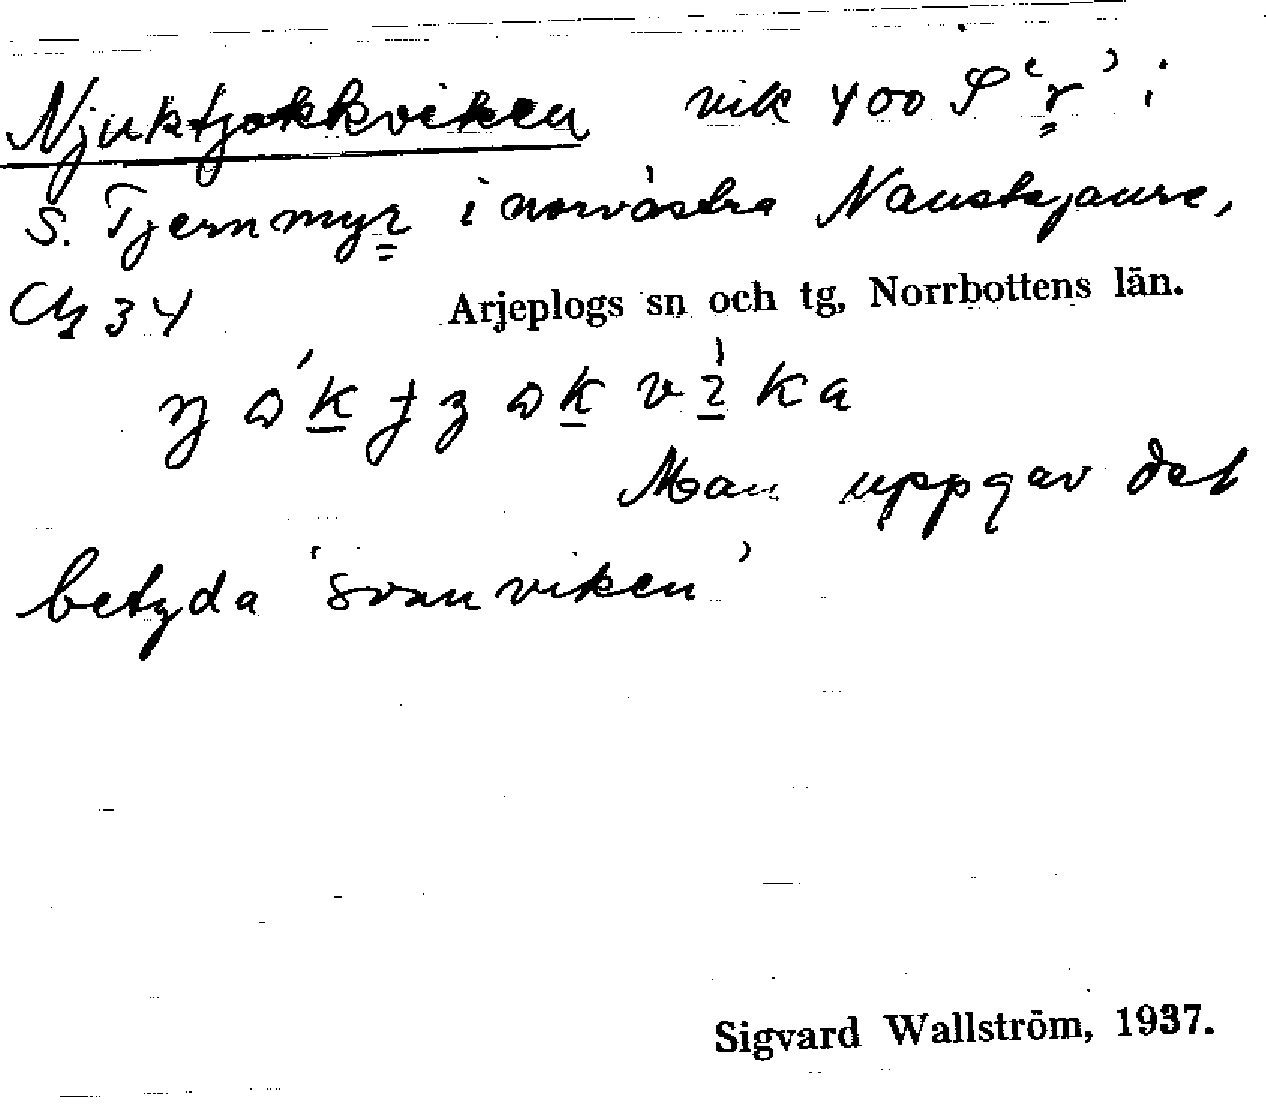 Njuktjokkviken vik 400 S 'r' i
S. Tjernmyr i norvästra Nautsjaure,
34 Arjeplogs sn och tg, Norrbottens län.
Man uppgav det
betyda 'svanviken'
Sigvard Wallström, 1937.